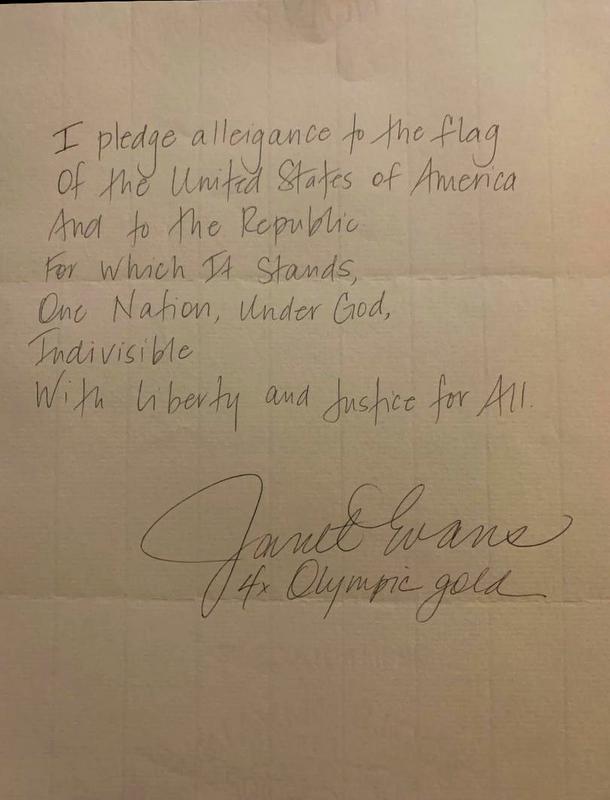 I pledge alleigance to the flag
Of the United States of America
And to the Republic
For Which It Stands,
One Nation, Under God,
Indivisible
With liberty and Justice for All.
Janet Evans
4x Olympic gold